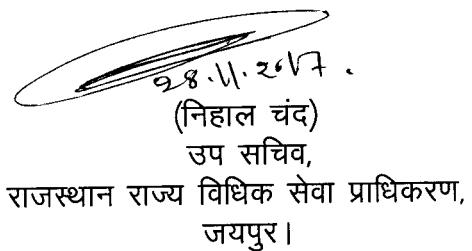 28.11.2017.
(निहाल चंद)
उप सचिव,
राजस्थान राज्य विधिक सेवा प्राधिकरण,
जयपुर।